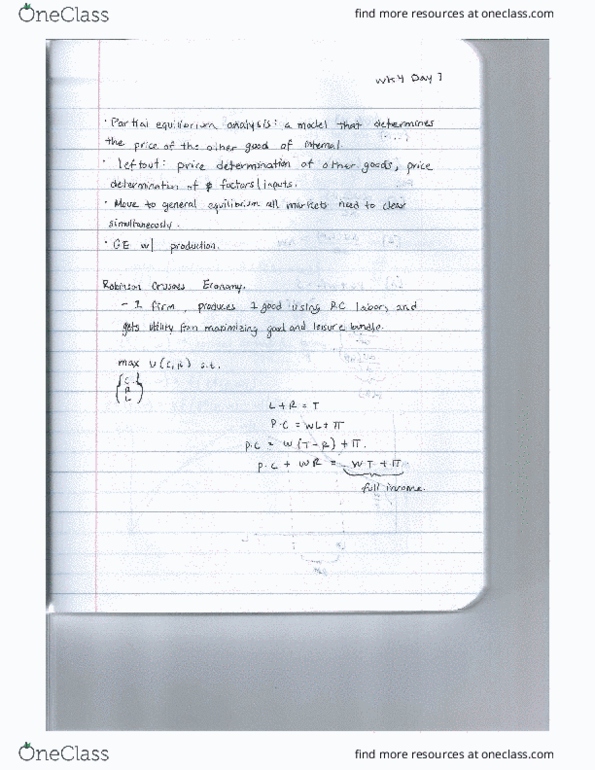 OneClass
find more resources at oneclass.com
WK4 Day
• Partial equilibrium analysis: a model that determines
the price of the other good of internal.
• leftout: price determination of other goods, price
determination of factors/inputs.
• Move to general equilibrium all markets need to clear
simultaneously.
• GE w/ production.
Robinson Crusoes Economy.
- 1 firm, produces 1 good using RC labor, and
gets utility from maximizing good and leisure bundle.
max U(C,R) s.t.
{C,
R
L}
L + R = T
P·C = WL + π
P·C = W(T-R) + π.
P·C + WR = WT + π
full income.
OneClass
find more resources at oneclass.com